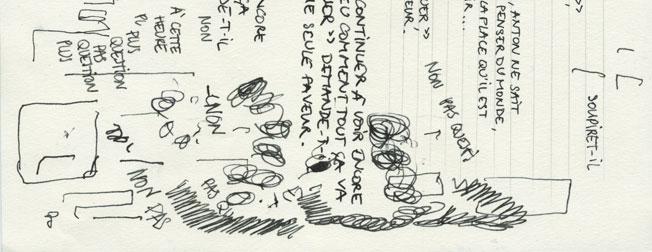 SOUPIRET-IL
>>
, ANTON NE SAIT
PENSER DU MONDE,
LA PLACE QU'IL EST
IR...
UER >>
EUR.
NON PAS
CONTINUER À VOIR ENCORE
EU COMMENT TOUT ÇA VA
UER >> DEMANDE-T-
E SEULE FAVEUR.
ENCORE
ÇA
DE-T-IL
NON
NON
PAS
À CETTE
HEURE
PLUS
QUESTION
PAS
QUESTION
PLUS
NON PAS